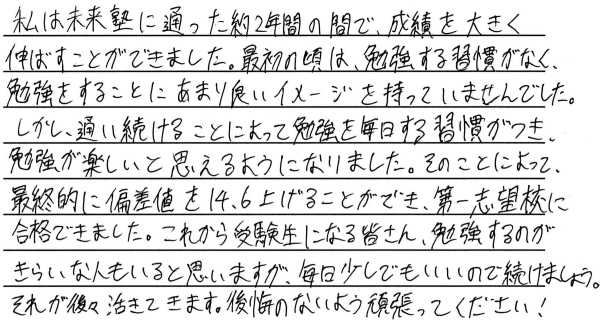 私は未来塾に通った約2年間の間で、成績を大きく
伸ばすことができました。最初の頃は、勉強する習慣がなく、
勉強をすることにあまり良いイメージを持っていませんでした。
しかし、通い続けることによって勉強を毎日する習慣がつき、
勉強が楽しいと思えるようになりました。そのことによって、
最終的に偏差値を14.6上げることができ、第一志望校に
合格できました。これから受験生になる皆さん、勉強するのが
きらいな人もいると思いますが、毎日少しでもいいので続けましょう。
それが後々活きてきます。後悔のないよう頑張ってください！